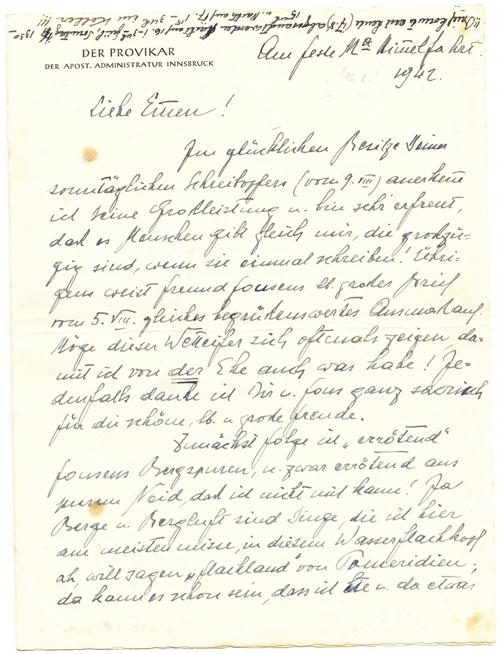 DER PROVIKAR
DER APOST. ADMINISTRATUR INNSBRUCK
Am Feste Mä Himmelfahrt
(15.8.)
1942.
Liebe Emen!
Im glücklichen Besitze Deines
sonntäglichen Schreibopfers (vom 9. VIII) anerkenne
ich Deine Großleistung u. bin sehr erfreut,
daß es Menschen gibt gleich mir, die großzü-
gig sind, wenn sie einmal schreiben! Übri-
gens weist Freund Fonsens lb. großer Brief
vom 5. VIII. gleiches begrüßenswertes Ausmaß auf.
Möge dieser Wetteifer sich oftmals zeigen, da-
mit ich von der Ehe auch was habe! Je-
denfalls danke ich Dir u. Fons ganz
für die schöne, lb. u. große Freude.
Zunächst folge ich „errötend"
Fonsens Bergspuren, u. zwar errötend aus
purem Neid, daß ich nicht mit kann! Ja
Berge u. Bergluft sind Dinge, die ich hier
am meisten misse, in diesem Wasserflachkopf
ah, will sagen „flachland" von Pomeridien;
da kann es schon sein, dass ich u. da etwas